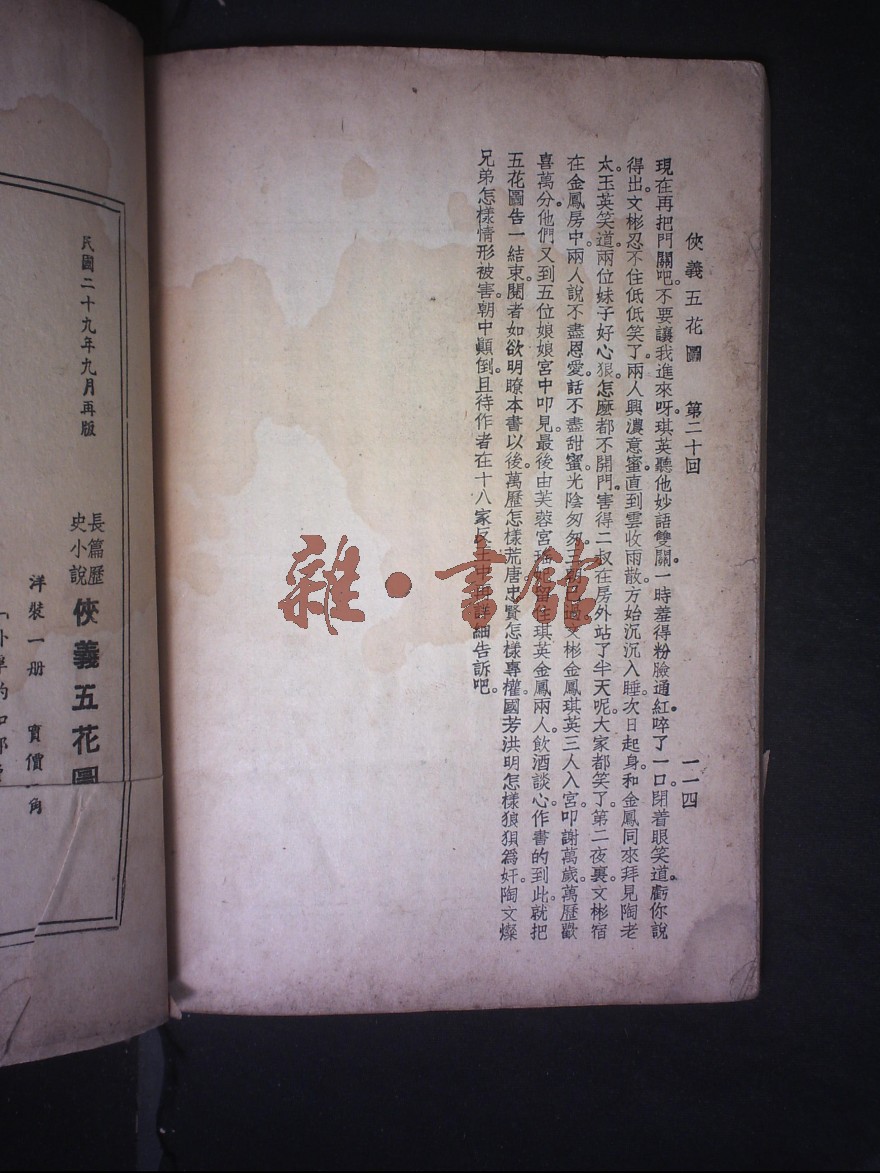 俠義五花圖　第二十回　一一四
現在再把門關吧。不要讓我進來呀。琪英聽他妙語雙關。一時羞得粉臉通紅。啐了一口。閉着眼笑道。虧你說
得出。文彬忍不住低低笑了。兩人興濃意蜜。直到雲收雨散。方始沉沉入睡。次日起身。和金鳳同來拜見陶老
太。玉英笑道。兩位妹子好心狠。怎麼都不開門。害得二叔在房外站了半天呢。大家都笑了。第二夜裏。文彬宿
在金鳳房中。兩人說不盡恩愛。話不盡甜蜜。光陰匆匆。三朝已過。文彬金鳳琪英三人入宮。叩謝萬歲。萬歷歡
喜萬分。他們又到五位娘娘宮中叩見。最後由芙蓉宮瑞妃留住琪英金鳳兩人。飲酒談心。作書的到此。就把
五花圖告一結束。閱者如欲明瞭本書以後。萬歷怎樣荒唐。忠賢怎樣專權。國芳洪明怎樣狼狽爲奸。陶文燦
兄弟怎樣情形被害。朝中顚倒。且待作者在十八家反王中再詳細告訴吧。
雜·書館
民國二十九年九月再版
長篇歷
史小說
俠義五花圖
洋裝一册　實價　角